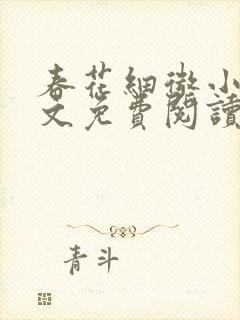 春花細微小
文免費閱讀
青斗